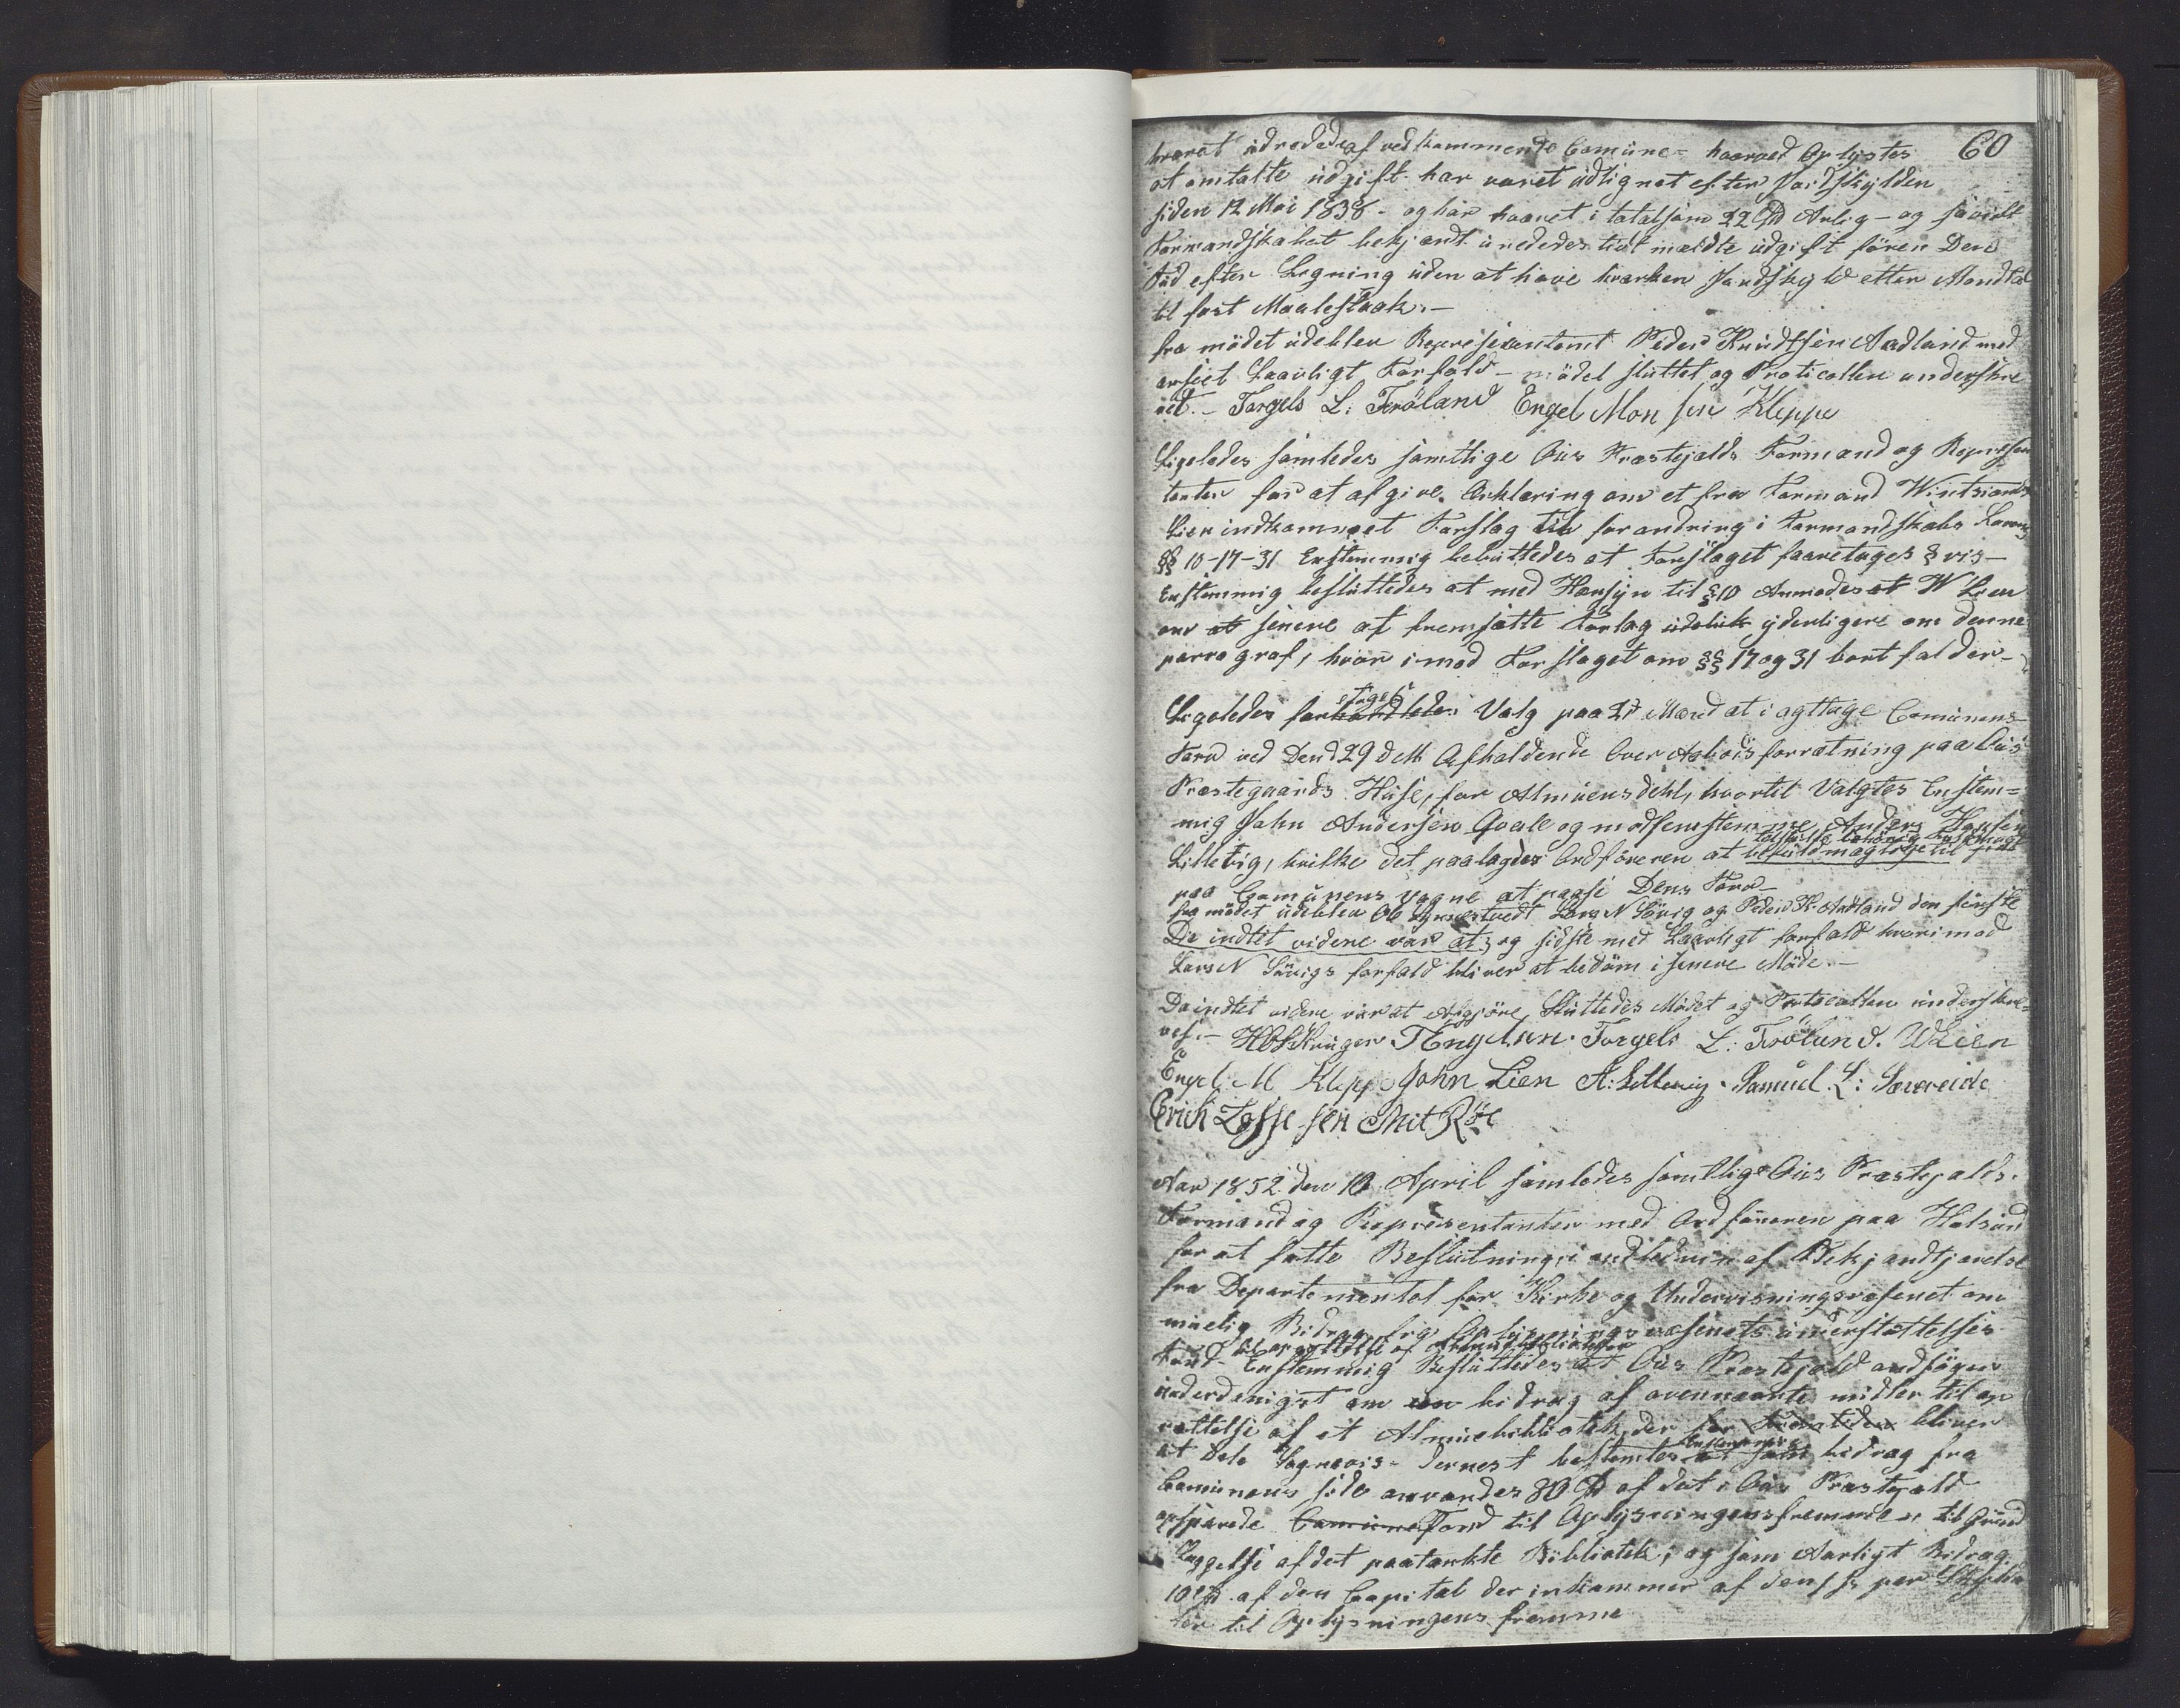 60
været udredede af vedkommende Comune - hvorved Oplystes
at omtalte udgift har været udlignet efter Jordskylden
siden 12 Mai 1838 - og har været i total sum 22 Spd Aarlig - og saavidt
Formandskabet bekjendt udrededes tidt meldte udgift fören Den
Tid efter Legning uden at have hverken Jordskyld etter Mandtal
til fast Maalestaak. -
fra mödet udeblev Repræsentant Peder Knudtsen Aadland med
anseet Laavligt Forfald - mödet sluttet og Proticollen underskre
vet. - Torgels L: Tröland Engel Monsen Kleppe
Ligeledes samledes samtlige Ous Præstejælds Formænd og Represen
tanter for at afgive Erklæring om et fra Formand Wintsiants
Lien indkommet Forslag til forandring i Formandskabs Lovens
§§ 10-17-31 Enstemmig besluttedes at Forslaget foaretages § vis -
Enstemmig besluttedes at med Hensyn til § 10 Anmodes at W Lien
om at senere at fremsætte Forlag yderligere om denne
parragraf, hvor imod Forslaget om §§ 17 og 31 bort falder -
Ligeledes foretages Valg paa 2de Mænd at i agttage Comunens
Tarv ved Dend 29 d M Afholdende Over Aabodsforretning paa Ous
Præstegaards Huse, for Almuens dehl, hvortil Valgtes Enstem=
mig John Andersen Qvale og med stemme Anders Hansen
Lillevig, hvilke det paalagdes Ordföreren at befuldmægtige til
paa Comunens vegne at paase Dens Tarv -
fra mödet udeblev Lars N Sövig og Peder K. Aadland den
Die indtet videre var at, og sidste med Laavligt forfald hvorimod
Lars N Sövigs forfald bliver at bedöm i senere Möde. -
Da indtet videre var at Afgjöre, Sluttedes Mödet og Protocollen underskre=
ves. - Krüger. T Engelsen. Torgels L: Tröland. W Lien
Engel M Kleppe John Lien A: Lillevig. Samuel L: Sævereide
Erich Zasse sen Mit Röe
Aar 1852 den 10 April samledes samtlige Ous Præstejalds
Formænd og Repræsentanter med Ordföreren paa Halsund
for at fatte Beslutning i andledning af Bekjendtjørelse
fra Departementet for Kirke og Undervisningsvæsenet om
muelig Bidrag Oplysningsvæsenets understöttelses
til oprettelse af Almuebibliotheker
Fond - Enstemmig Besluttedes at Ous Præstejæld andsöger
underdanigst om en bidrag af ovennævnte midler til op
rettelse af et Almuebibliotek, der for Fremtiden bliver
at Dele Sognevis - Dernest bestemtes Enstemmig at som bidrag fra
Comunens side anvendes 80 Spd af det i Ous Præstejæld
opsparede Comune Fond til Oplysningens fremme, til Grund
læggelse af det paatænkte Bibliotek; og som Aarligt Bidrag
10 Spd af den Capital der inkommer af den ß per
ler til Oplysningens fremme